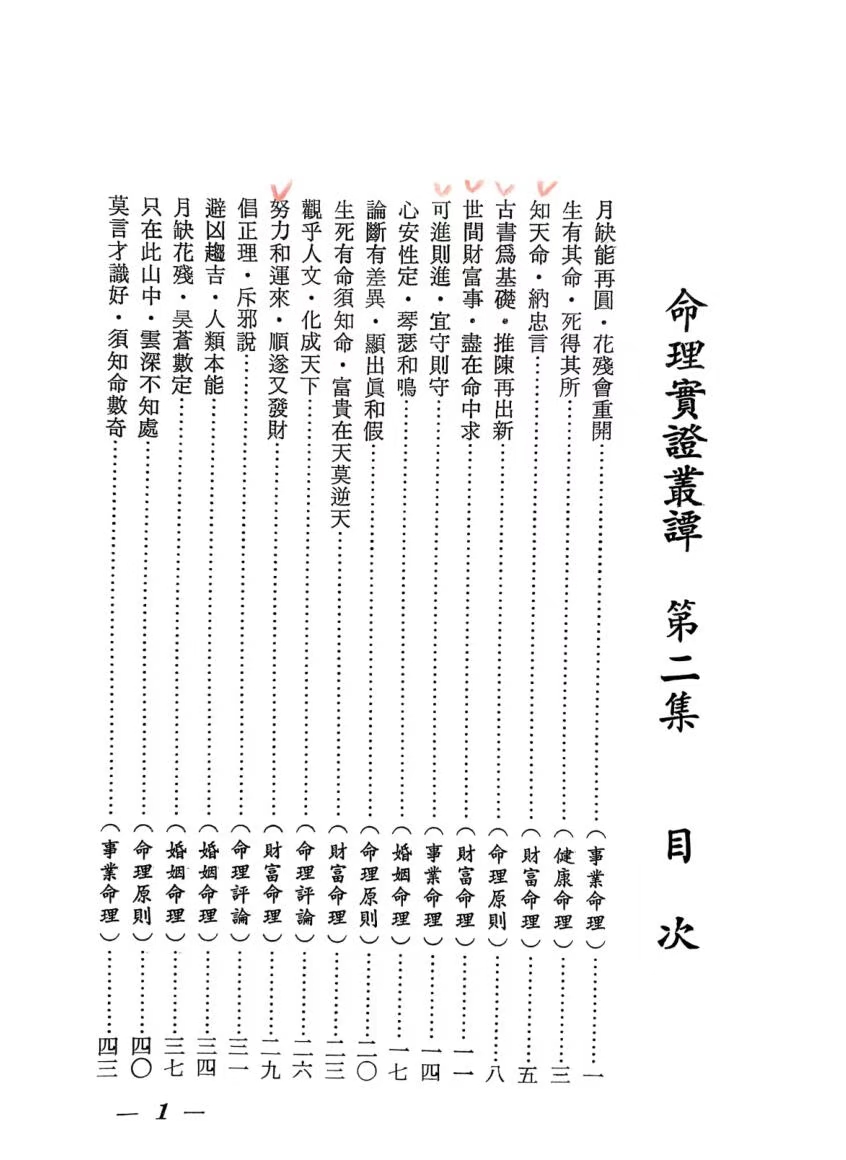 命理實證叢譚　第二集　目次
月缺能再圓・花殘會重開……（事業命理）……一
生有其命・死得其所……（健康命理）……三
知天命・納忠言……（財富命理）……五
古書爲基礎・推陳再出新……（命理原則）……八
世間財富事・盡在命中求……（財富命理）……一一
可進則進・宜守則守……（事業命理）……一四
心安性定・琴瑟和鳴……（婚姻命理）……一七
論斷有差異・顯出眞和假……（命理原則）……二〇
生死有命須知命・富貴在天莫逆天……（財富命理）……二三
觀乎人文・化成天下……（命理評論）……二六
努力和運來・順遂又發財……（財富命理）……二九
倡正理・斥邪說……（命理評論）……三一
避凶趨吉・人類本能……（婚姻命理）……三四
月缺花殘・昊蒼數定……（婚姻命理）……三七
只在此山中・雲深不知處……（命理原則）……四〇
莫言才識好・須知命數奇……（事業命理）……四三
— 1 —